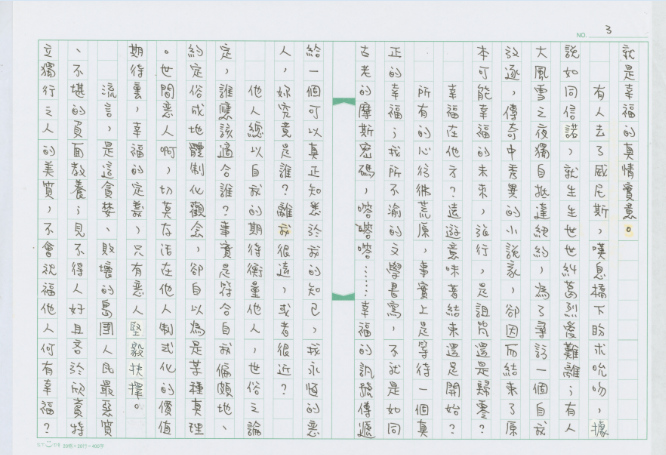 NO. 3
就是幸福的真情實意。
有人去了威尼斯，嘆息橋下盼求吮吻，據
說如同信諾，就生生世世糾葛到愛難離；有人
大風雪之夜獨自抵達紐約，為了尋訪一個自我
放逐，傳奇中秀異的小說家，卻因而結束了原
本可能幸福的未來，旅行，是詛咒還是歸零？
幸福在他方？遠遊意味著結束還是開始？
所有的心彷彿荒原，事實上是等待一個真
正的幸福；我所不渝的文學書寫，不就是如同
古老的摩斯密碼，喀喀喀……幸福的訊號傳遞
給一個可以真正知悉於我的知己，我永恆的戀
人，妳究竟是誰？離我很遠，或者很近？
他人總以自我的期待衡量他人，世俗之論
定，誰應該適合誰？事實是符合自我偏頗地、
約定俗成地體制化觀念，卻自以為是某種真理
。世間戀人啊，切莫存活在他人制式化的價值
期待裏，幸福的定義，只有戀人堅毅抉擇。
流言，是這貪婪、敗壞的島國人民最惡質
、不堪的負面教養；見不得人好且吝於欣賞特
立獨行之人的美質，不會祝福他人何有幸福？